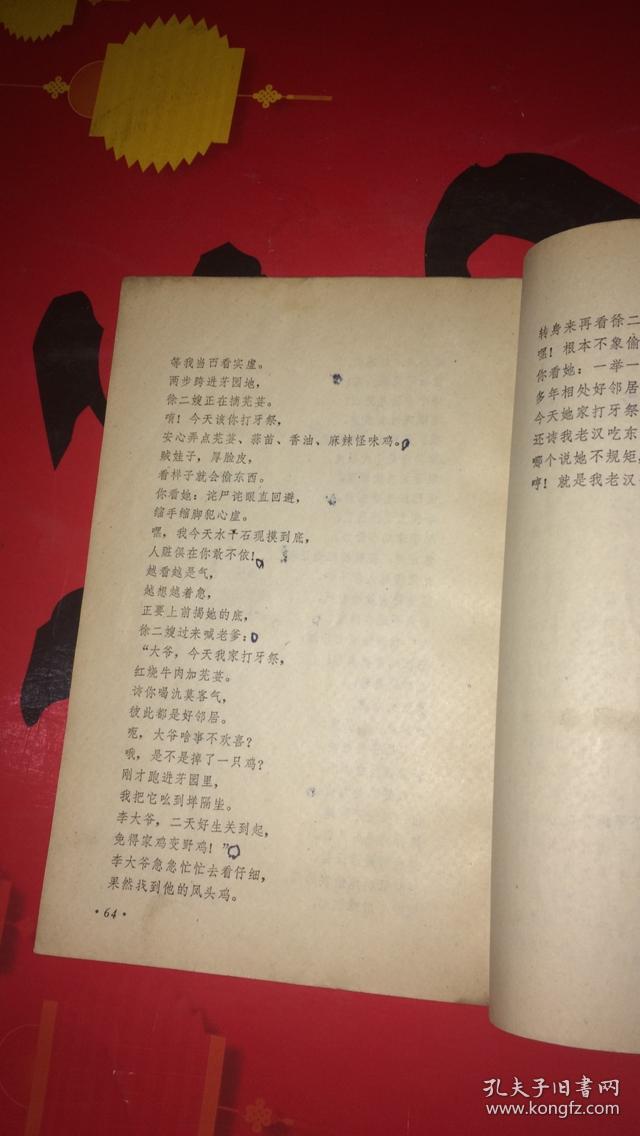 等我当面看实虚。
两步跨进芽园地，
徐二嫂正在摘芫荽。
唷！今天该你打牙祭，
安心弄点芫荽、蒜苗、香油、麻辣怪味鸡。
贼娃子，厚脸皮，
看样子就会偷东西。
你看她：诧尸诧眼直回避，
缩手缩脚犯心虚。
嘿，我今天水干石现摸到底，
人赃俱在你敢不依！
越看越是气，
越想越着急，
正要上前揭她的底，
徐二嫂过来喊老爹：
“大爷，今天我家打牙祭，
红烧牛肉加芫荽，
请你喝氿莫客气，
彼此都是好邻居。
呃，大爷啥事不欢喜？
哦，是不是掉了一只鸡？
刚才跑进芽园里，
我把它吆到埲隔生。
李大爷，二天好生关到起，
免得家鸡变野鸡！”
李大爷急急忙忙去看仔细，
果然找到他的凤头鸡。
·64·
转身来再看徐二
嘿！根本不象偷
你看她：一举一
多年相处好邻居
今天她家打牙祭
还请我老汉吃东
哪个说她不规矩，
哼！就是我老汉
孔夫子旧书网
www.kongfz.com